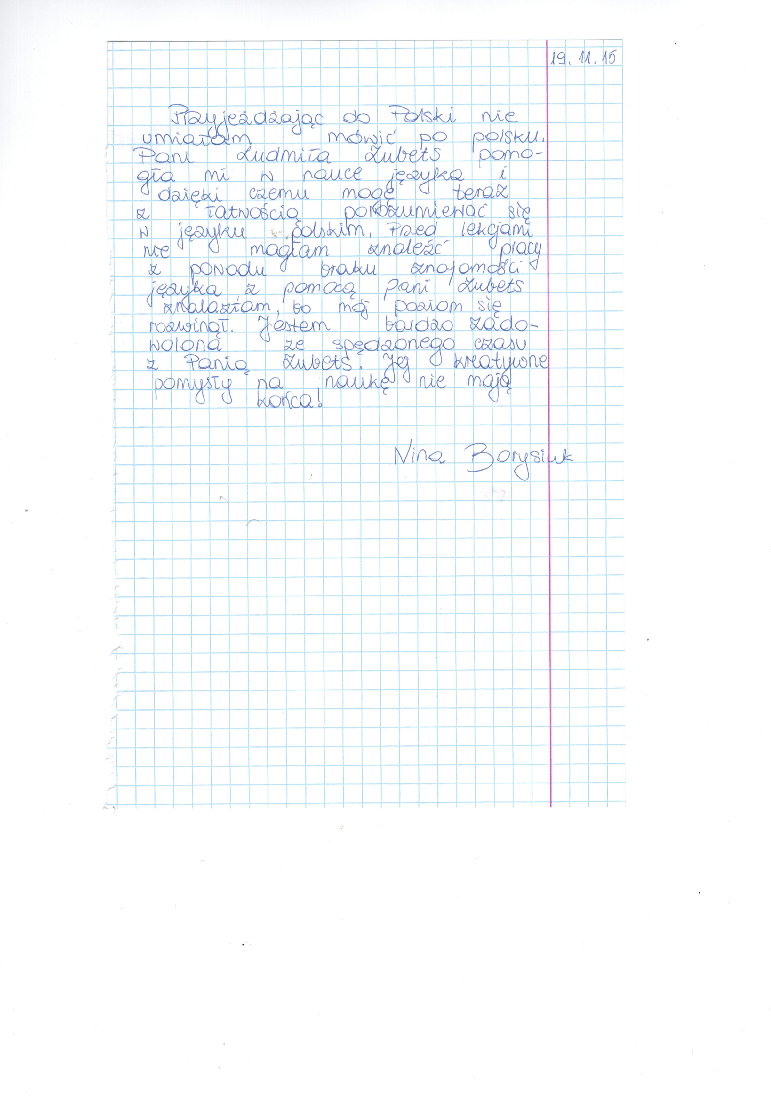 19.11.15
Przyjeżdżając do Polski nie
umiałam mówić po polsku.
Pani Ludmiła Zubets pomo-
gła mi w nauce języka i
dzięki czemu mogę teraz
z łatwością porozumiewać się
w języku polskim. Przed lekcjami
nie mogłam znaleźć pracy
z powodu braku znajomości
języka z pomocą Pani Zubets
znalazłam, bo mój poziom się
rozwinął. Jestem bardzo zado-
wolona ze spędzonego czasu
z Panią Zubets. Jej kreatywne
pomysły na naukę nie mają
końca!
Nina Borysiuk